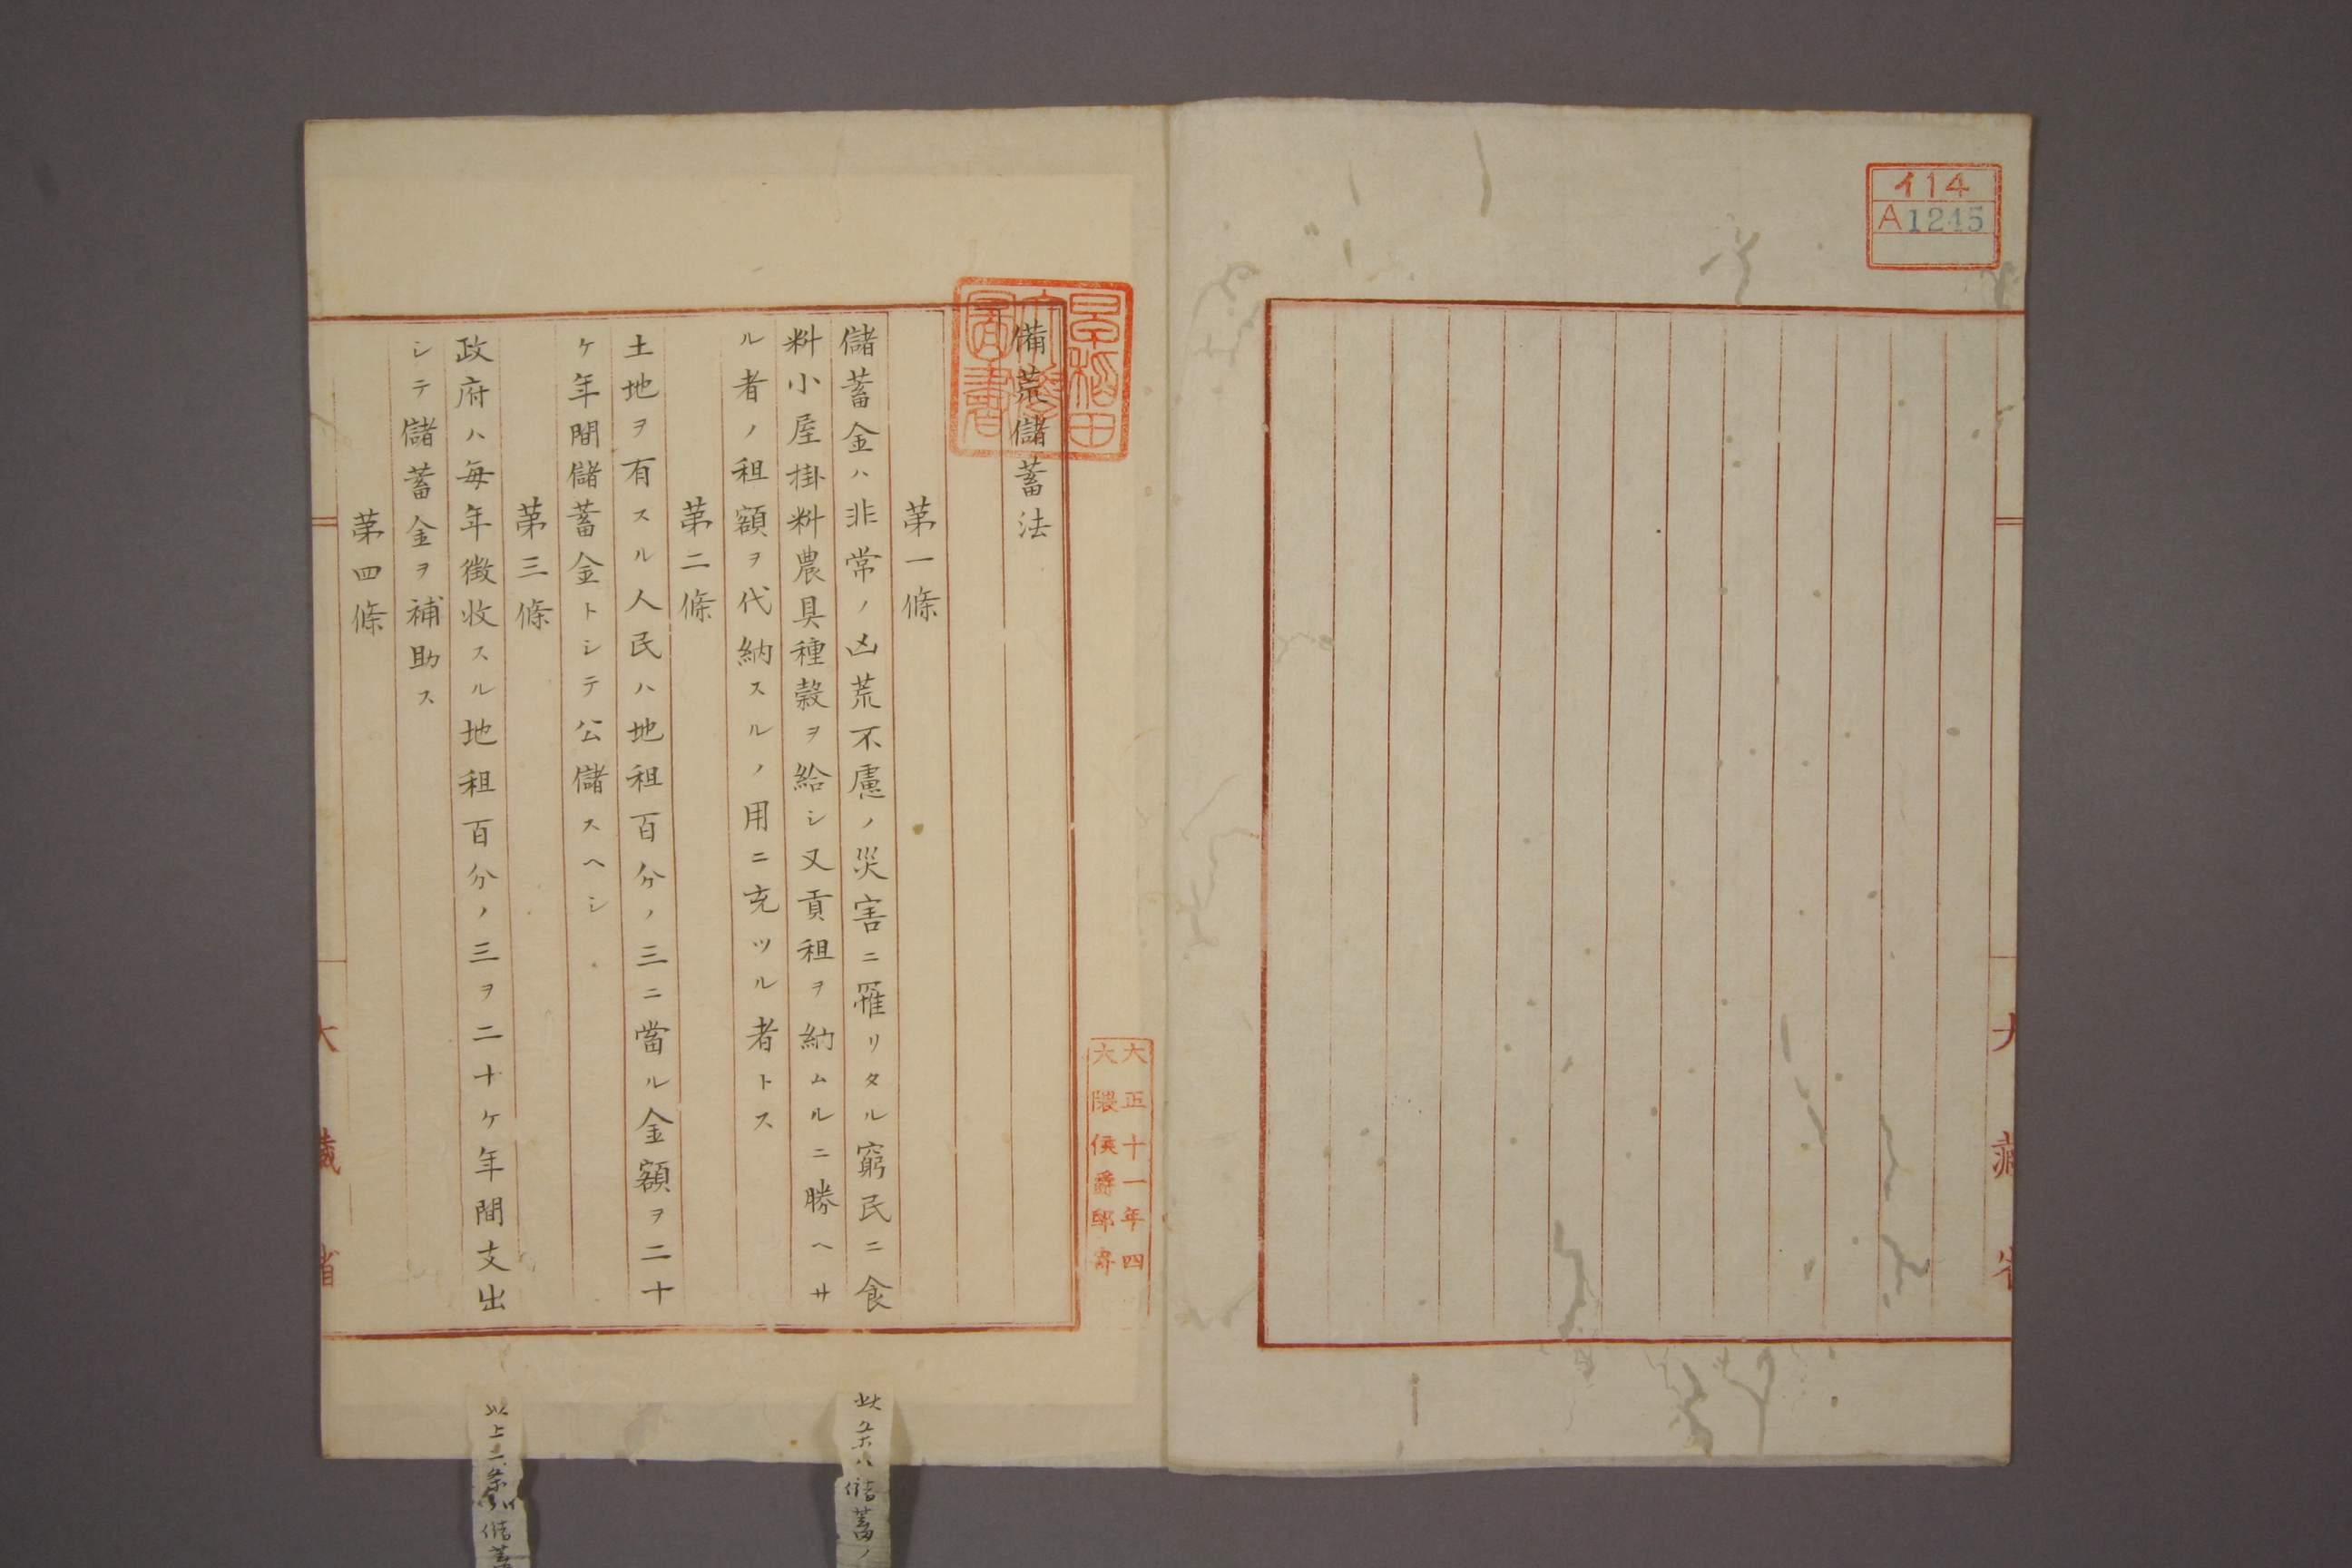 イ14
A1245
大藏省
早稻田
大學
圖書
大正十一年四
大隈侯爵邸寄
備荒儲蓄法
第一條
儲蓄金ハ非常ノ凶荒不慮ノ災害ニ罹リタル窮民ニ食
料小屋掛料農具種穀ヲ給シ又貢租ヲ納ムルニ勝ヘサ
ル者ノ租額ヲ代納スルノ用ニ充ツル者トス
第二條
土地ヲ有スル人民ハ地租百分ノ三ニ當ル金額ヲ二十
ケ年間儲蓄金トシテ公儲スヘシ
第三條
政府ハ毎年徴收スル地租百分ノ三ヲ二十ケ年間支出
シテ儲蓄金ヲ補助ス
第四條
大藏省
此条ハ儲蓄ノ
以上二条ハ儲蓄